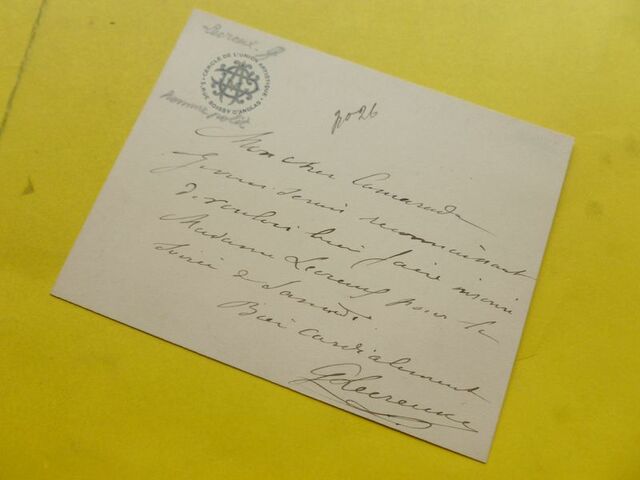 Lecreux. G
CERCLE DE L'UNION ARTISTIQUE
5, RUE BOISSY D'ANGLAS
homme polit.
Mon cher Camarade
Je vous serais reconnaissant
de vouloir bien faire inscrire
Madame Lecreux pour la
soirée de Samedi.
Bien cordialement
GLecreux